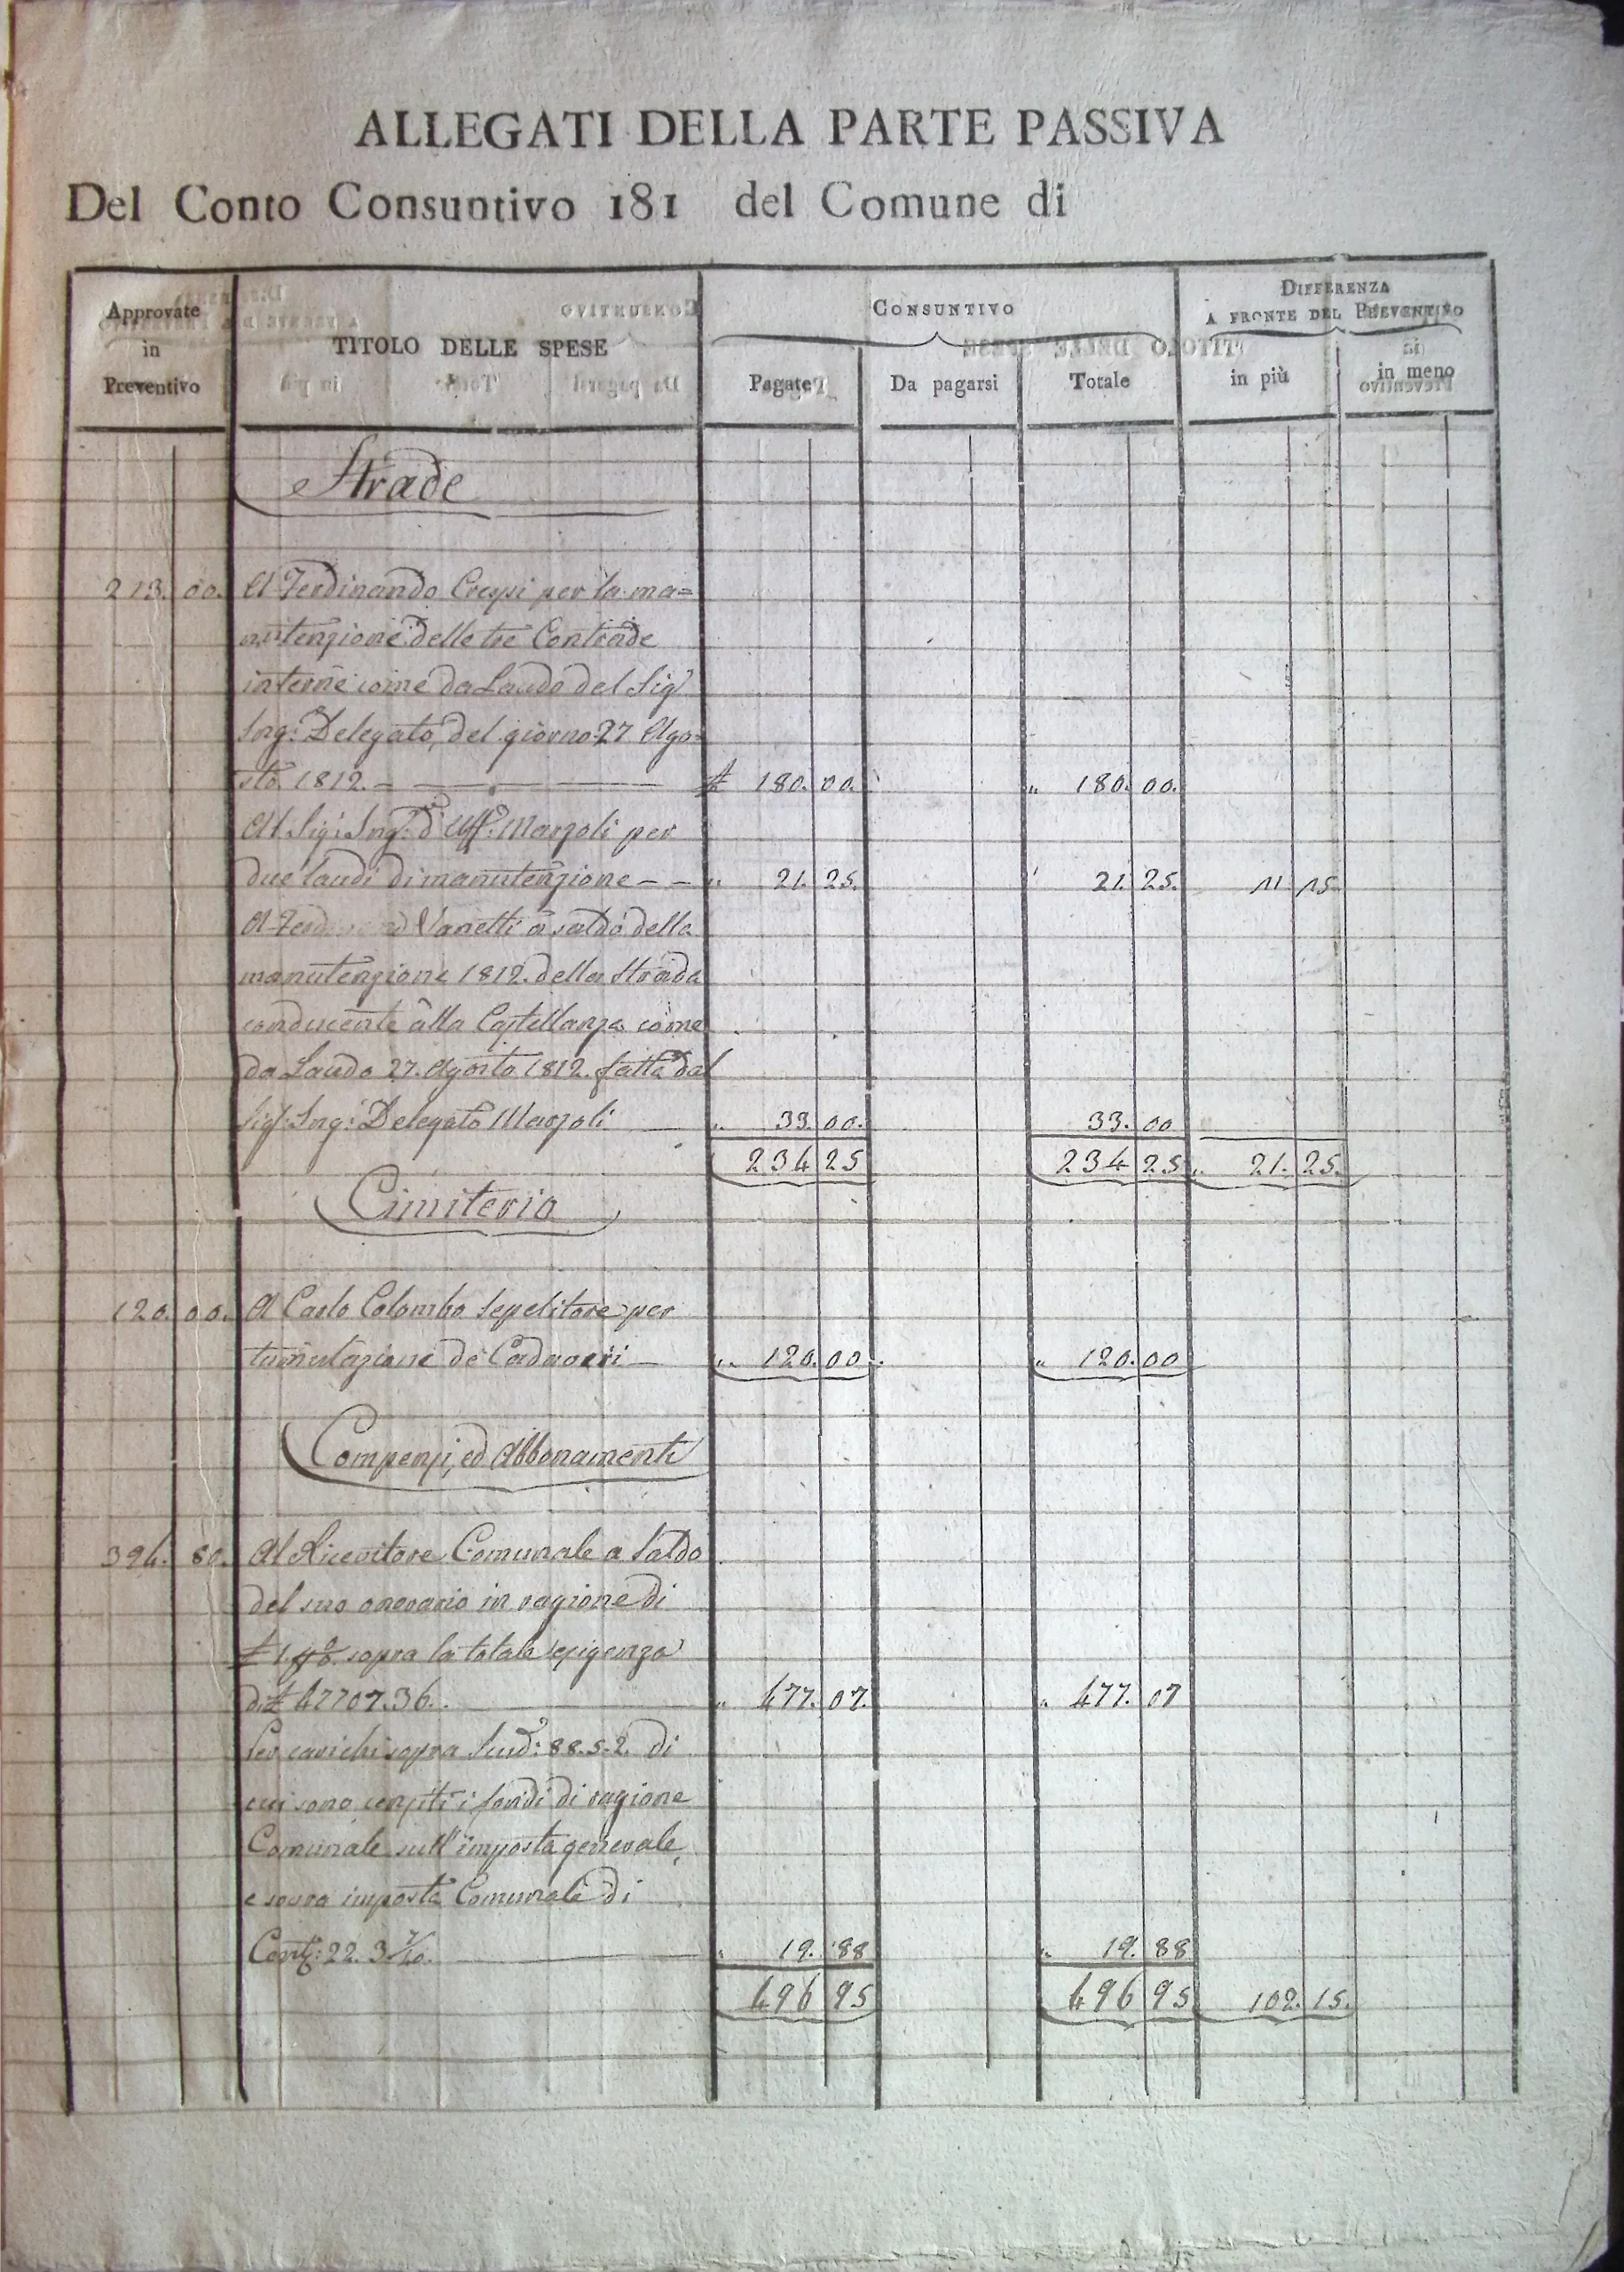 ALLEGATI DELLA PARTE PASSIVA
Del Conto Consuntivo 181 del Comune di
Approvate
in
Preventivo
TITOLO DELLE SPESE
CONSUNTIVO
Pagate
Da pagarsi
Totale
DIFFERENZA
A FRONTE DEL PREVENTIVO
in più
in meno
Strade
213. 00. A Ferdinando Crespi per la ma=
nutenzione delle tre Contrade
interne come da Laudo del Sigr
Ing: Delegato, del giorno 27 Ago=
sto 1812. 180. 00. " 180. 00.
Al Sigr Ingr d'Uff: Marzoli per
due laudi di manutenzione - - " 21. 25. 21. 25. 11. 15.
A Vanetti a saldo della
manutenzione 1812. della Strada
conducente alla Castellanza come
da Laudo 27. Agosto 1812. fatta dal
Sigr Ing: Delegato Marzoli " 33. 00. 33. 00
234 25 234 25 " 21. 25.
Cimiterio
120. 00. A Carlo Colombo Sepelitore per
tumulazione de Cadaveri " 120. 00. " 120. 00
Compensi, ed Abbonamenti
394. 80. Al Ricevitore Comunale a Saldo
del suo onorario in ragione di
sopra la totale esigenza
di 47707. 36. " 477. 07. " 477. 07
Per carichi sopra Scud: 88. 5. 2. di
cui sono censiti i fondi di ragione
Comunale sull'imposta generale,
e sovra imposta Comunale di
Cent: 22. 3 " 19. 88 " 19. 88
496 95 496 95 102. 15.